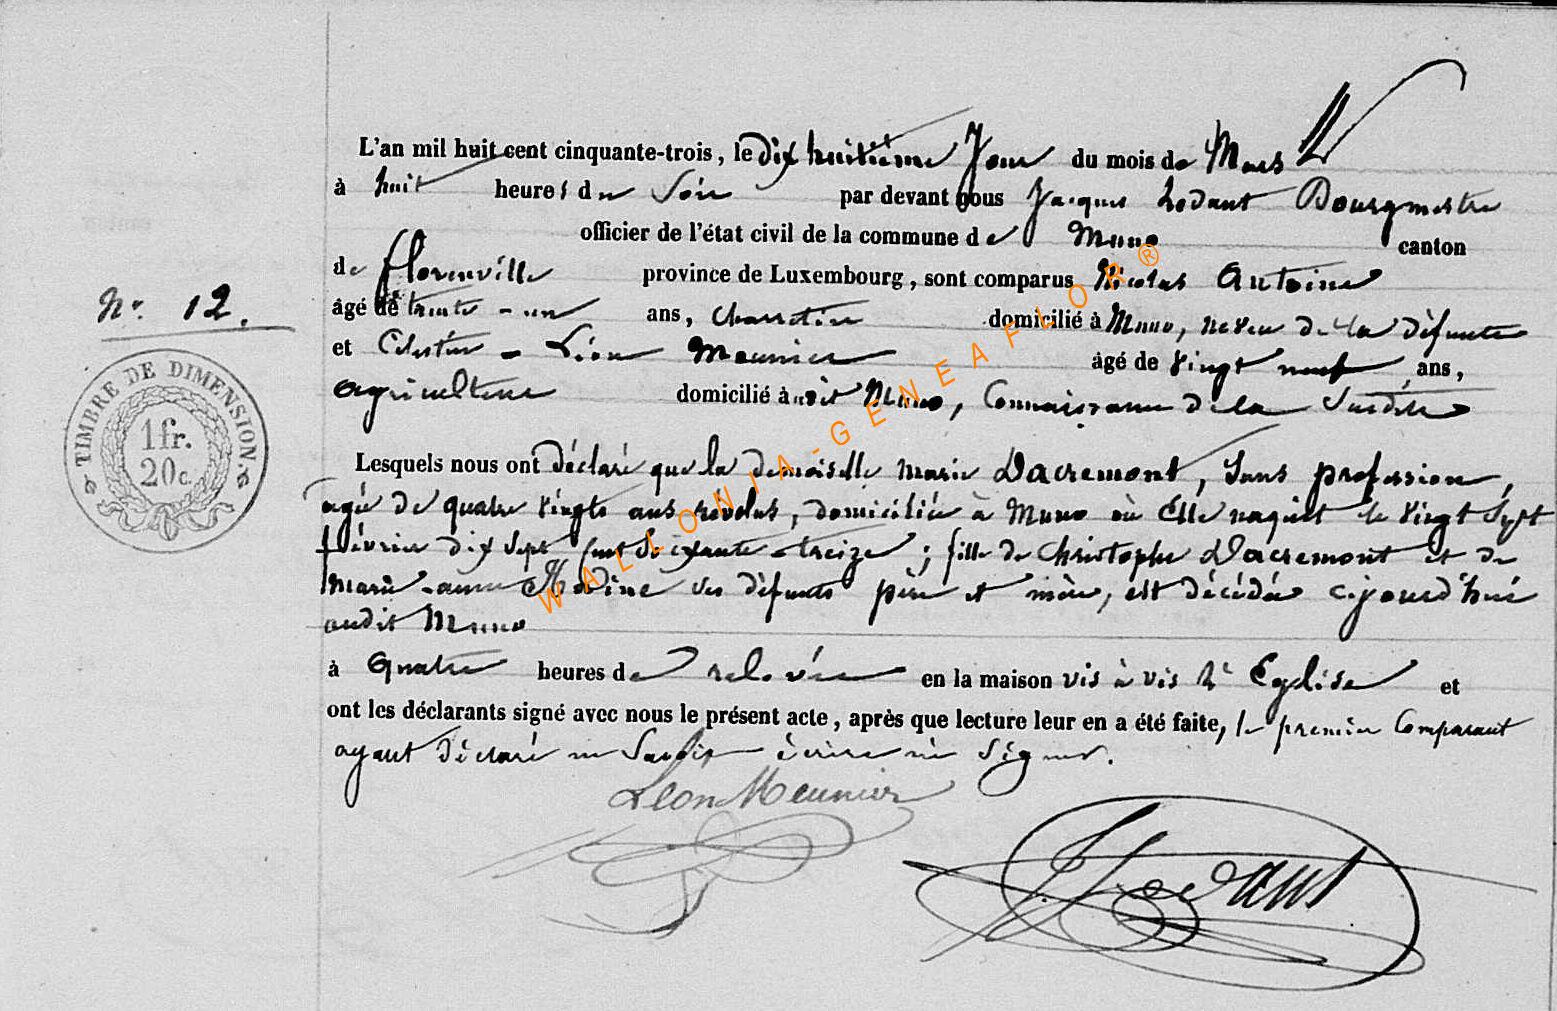 L'an mil huit cent cinquante-trois, le dix huitième Jour du mois de Mars
à huit heures du Soir par devant nous Jacques Hodant Bourgmestre
officier de l'état civil de la commune de Muno canton
de florenville province de Luxembourg, sont comparus Nicolas Antoine
N° 12.
âgé de trente-un ans, charretier domicilié à Muno, neveu de la défunte
et Célestin-Léon Meunier âgé de vingt neuf ans,
agriculteur domicilié audit Muno, Connaissance de la Susdite
TIMBRE DE DIMENSION.
1fr.
20c.
Lesquels nous ont déclaré que la demoiselle Marie Dacremont, Sans profession,
agée de quatre vingts ans révolus, domiciliée à Muno où Elle naquit le vingt Sept
février dix Sept Cent Soixante-treize; fille de Christophe Dacremont et de
Marie-anne ses défunts père et mère, est décédée cejourd'hui
audit Muno
à quatre heures de relevée en la maison vis à vis L' Eglise et
ont les déclarants signé avec nous le présent acte, après que lecture leur en a été faite, le premier Comparant
ayant déclaré ne Savoir écrire ni Signer.
Léon Meunier
J. Hodant
WALLONIA-GENEAFLOR®